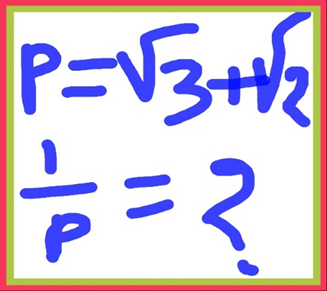 P=√3+√2
1/P = ?